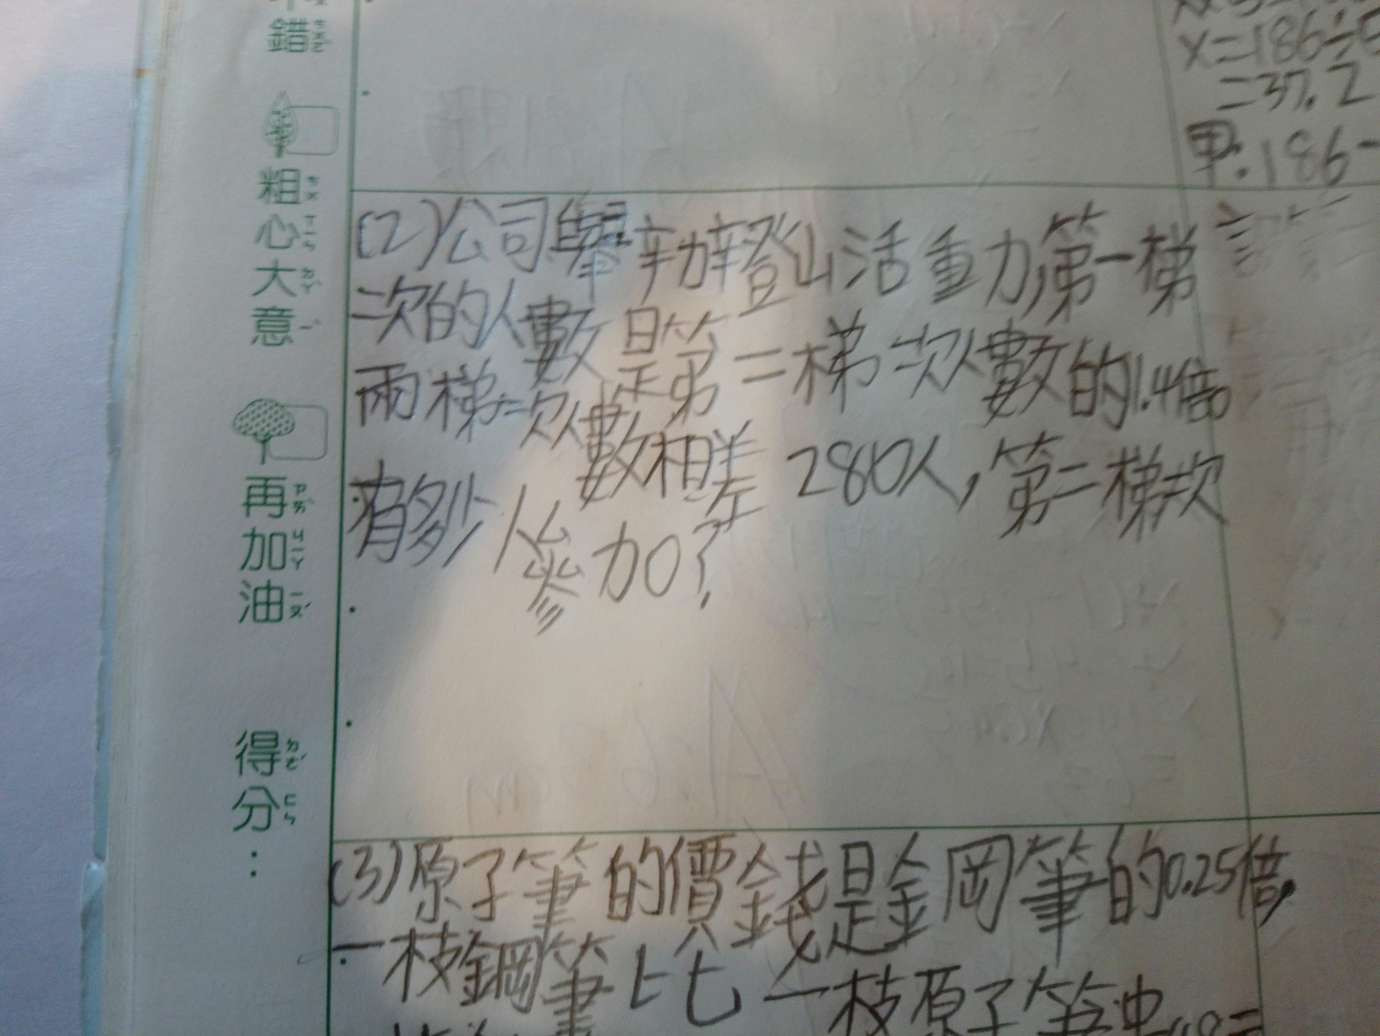 錯
粗心大意
再加油
得分:
x=186÷
=37.2
甲:186-
(2)公司舉辦登山活動,第一梯
次的人數是第二梯次人數的1.4倍。
兩梯次人數相差280人,第二梯次
有多少人參加?
(3)原子筆的價錢是鋼筆的0.25倍,
一枝鋼筆比一枝原子筆